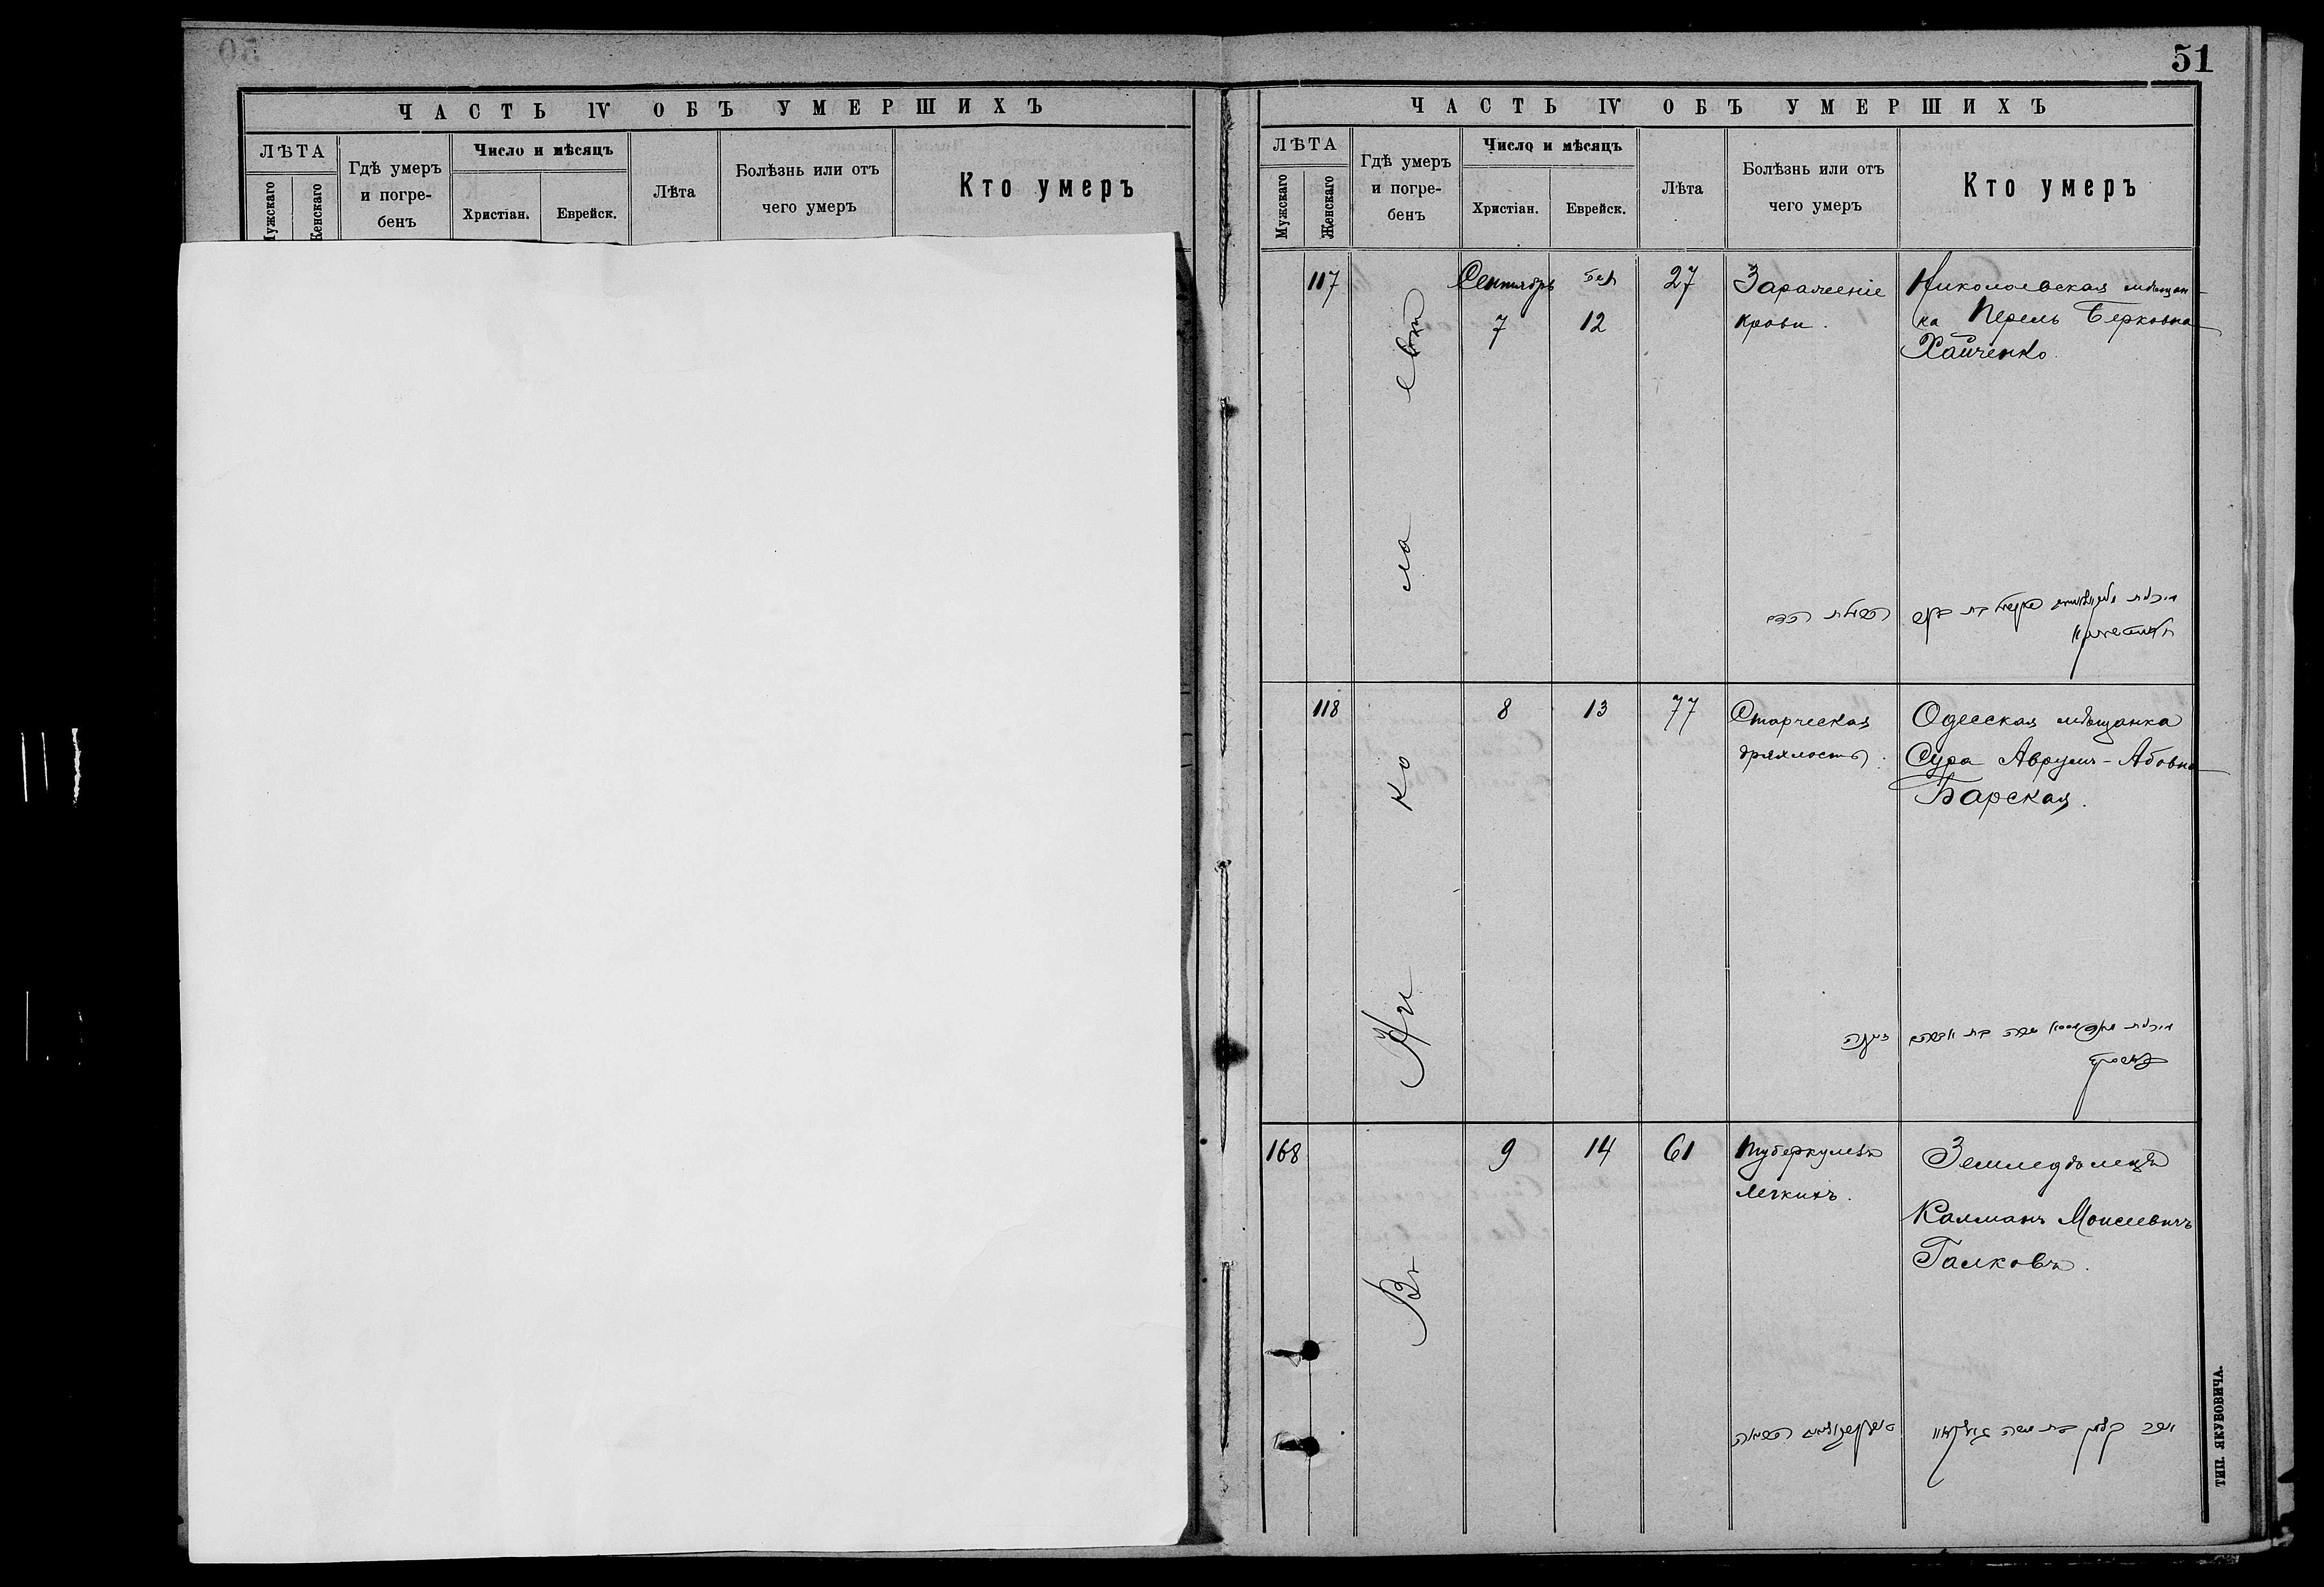 50
51
ЧАСТЬ IV ОБЪ УМЕРШИХЪ
ЛѢТА
Мужскаго
Женскаго
Гдѣ умеръ
и погре-
бенъ
Число и мѣсяцъ
Христіан.
Еврейск.
Лѣта
Болѣзнь или отъ
чего умеръ
Кто умеръ
ЧАСТЬ IV ОБЪ УМЕРШИХЪ
ЛѢТА
Мужскаго
Женскаго
Гдѣ умеръ
и погре-
бенъ
Число и мѣсяцъ
Христіан.
Еврейск.
Лѣта
Болѣзнь или отъ
чего умеръ
Кто умеръ
Въ Ни ко ла евѣ
117
Сентябрь
7
12
27
Зараженіе
крови.
Николаевская мѣщан-
ка Перель Берковна
Хайченко.
118
8
13
77
Старческая
дряхлость.
Одесская мѣщанка
Сура Аврумъ-Абовна
Барская.
168
9
14
61
Туберкулезъ
легкихъ.
Земледѣлецъ
Калманъ Моисеевичъ
Галковъ.
ТИП. ЯКУБОВИЧА.